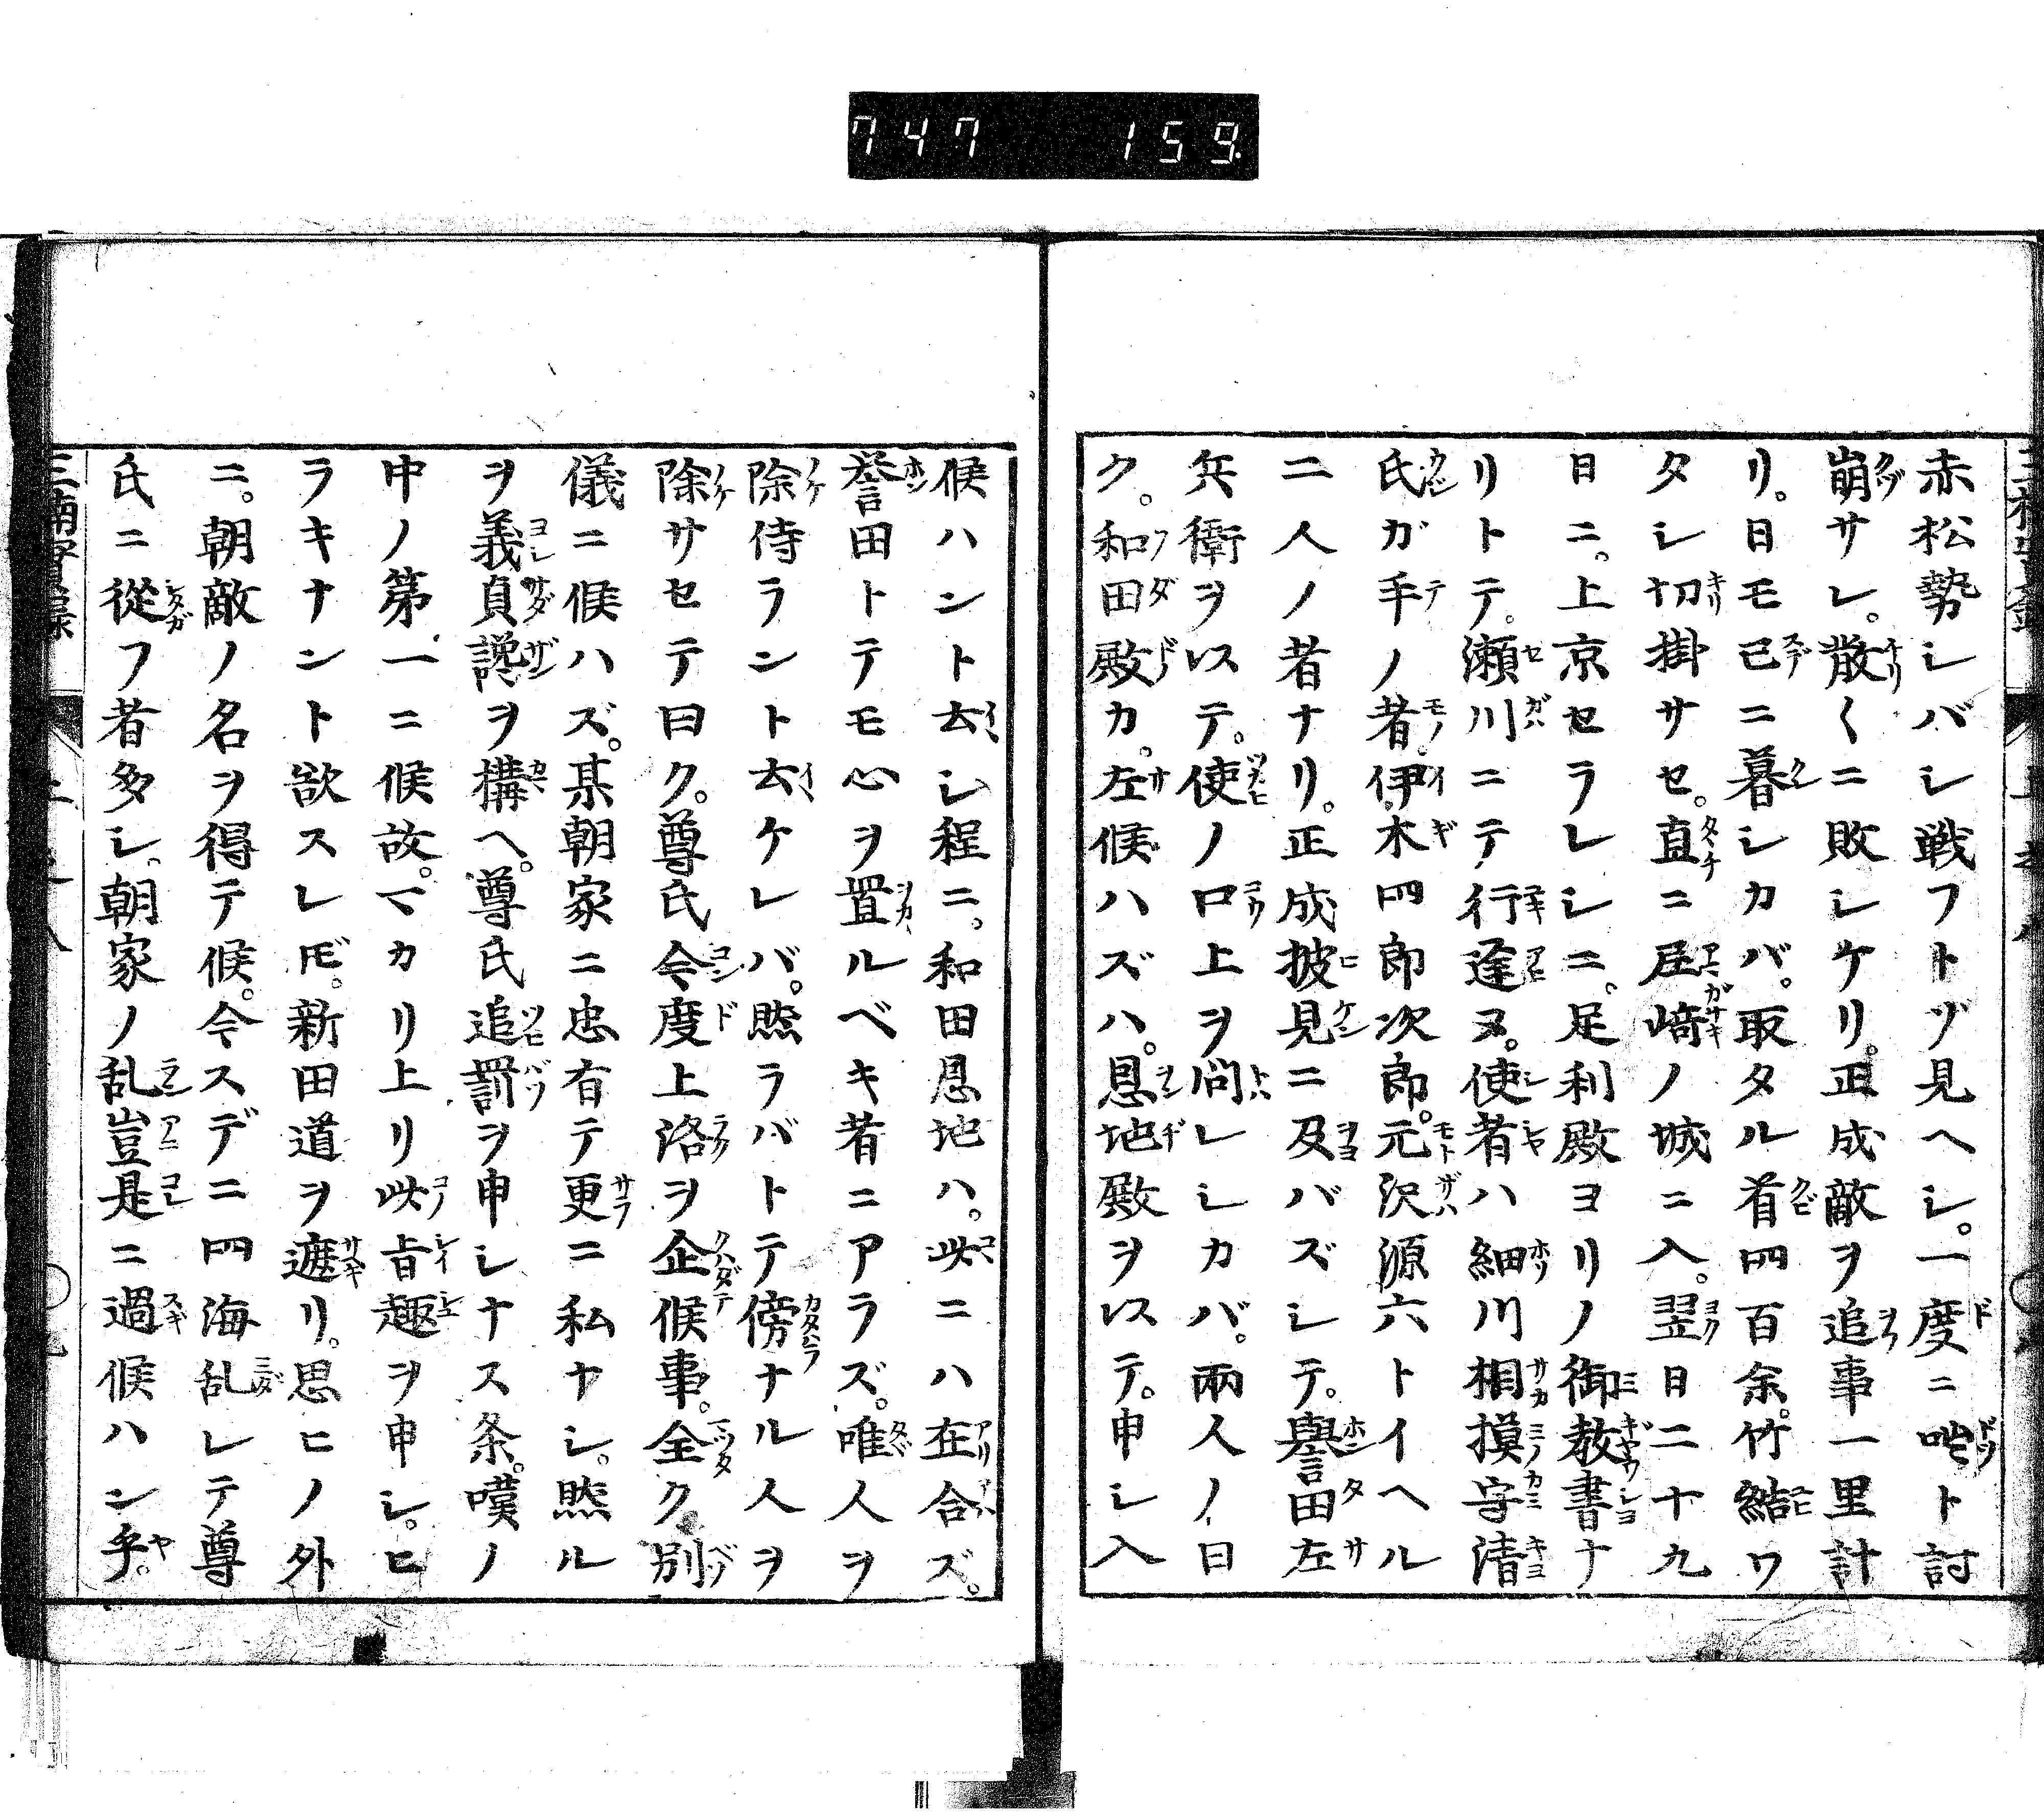 747 159
赤松勢シバシ戦フトゾ見ヘシ。一度ニ咄ト討
崩サレ。散〱ニ敗シケリ。正成敵ヲ追事一里計
リ。日モ已ニ暮シカバ。取タル首四百余。竹結ワ
タシ切掛サセ。直ニ尼﨑ノ城ニ入。翌日二十九
日ニ。上京セラレシニ。足利殿ヨリノ御教書ナ
リトテ。瀬川ニテ行逢ヌ。使者ハ細川相摸守清
氏ガ手ノ者。伊木四郎次郎。元沢源六トイヘル
二人ノ者ナリ。正成披見ニ及バズシテ。譽田左
兵衛ヲ以テ。使ノ口上ヲ問レシカバ。兩人ノ曰
ク。和田殿カ。左候ハズハ。恩地殿ヲ以テ。申シ入
候ハント云シ程ニ。和田恩地ハ。此ニハ在合ズ。
誉田トテモ心ヲ置ルベキ者ニアラズ。唯人ヲ
除侍ラント云ケレバ。然ラバトテ傍ナル人ヲ
除サセテ曰ク。尊氏今度上洛ヲ企候事。全ク別
儀ニ候ハズ。某朝家ニ忠有テ更ニ私ナシ。然ル
ヲ義貞讒ヲ構ヘ。尊氏追罰ヲ申シナス条。嘆ノ
中ノ第一ニ候故。マカリ上リ此旨趣ヲ申シ。ヒ
ラキナント欲スレ𪜈。新田道ヲ遮リ。思ヒノ外
ニ。朝敵ノ名ヲ得テ候。今スデニ四海乱レテ尊
氏ニ從フ者多シ。朝家ノ乱豈是ニ過候ハン乎。